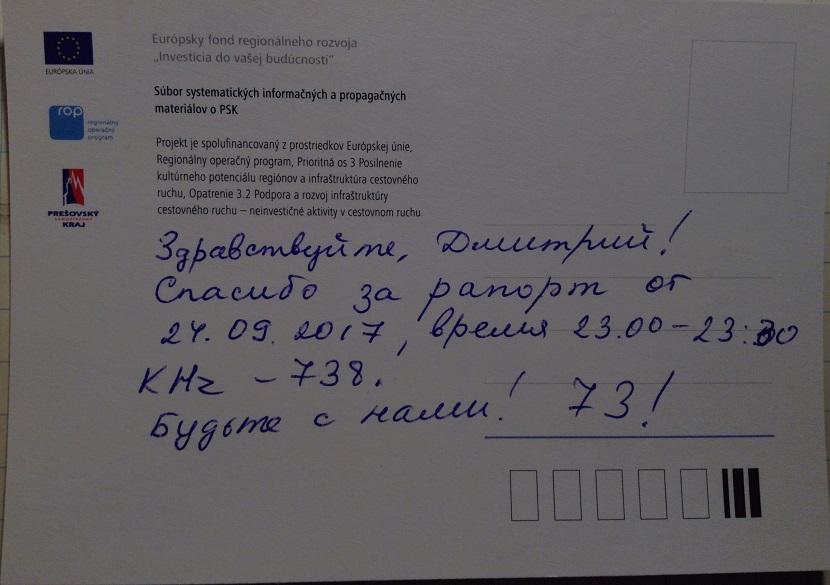 EURÓPSKA ÚNIA
Európsky fond regionálneho rozvoja
„Investícia do vašej budúcnosti“
Súbor systematických informačných a propagačných
materiálov o PSK
rop
regionálny
operačný
program
Projekt je spolufinancovaný z prostriedkov Európskej únie,
Regionálny operačný program, Prioritná os 3 Posilnenie
kultúrneho potenciálu regiónov a infraštruktúra cestovného
ruchu, Opatrenie 3.2 Podpora a rozvoj infraštruktúry
cestovného ruchu – neinvestičné aktivity v cestovnom ruchu.
PREŠOVSKÝ
KRAJ
Здравствуйте, Дмитрий!
Спасибо за рапорт от
24.09.2017, время 23.00-23:30
KHz - 738.
Будьте с нами! 73!